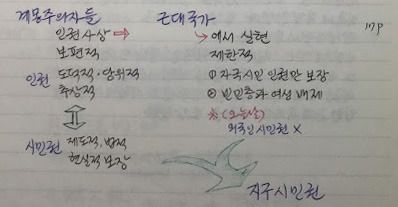 계몽주의자들
인권사상 ⇒
보편적
인권 도덕적·당위적
추상적
시민권 제도적, 법적
현실적 보장
근대국가
→에서 실현
제한적
① 자국시민 인권만 보장
② 빈민층과 여성 배제
※ (오늘날)
외국인 시민권 X
지구시민권
117p